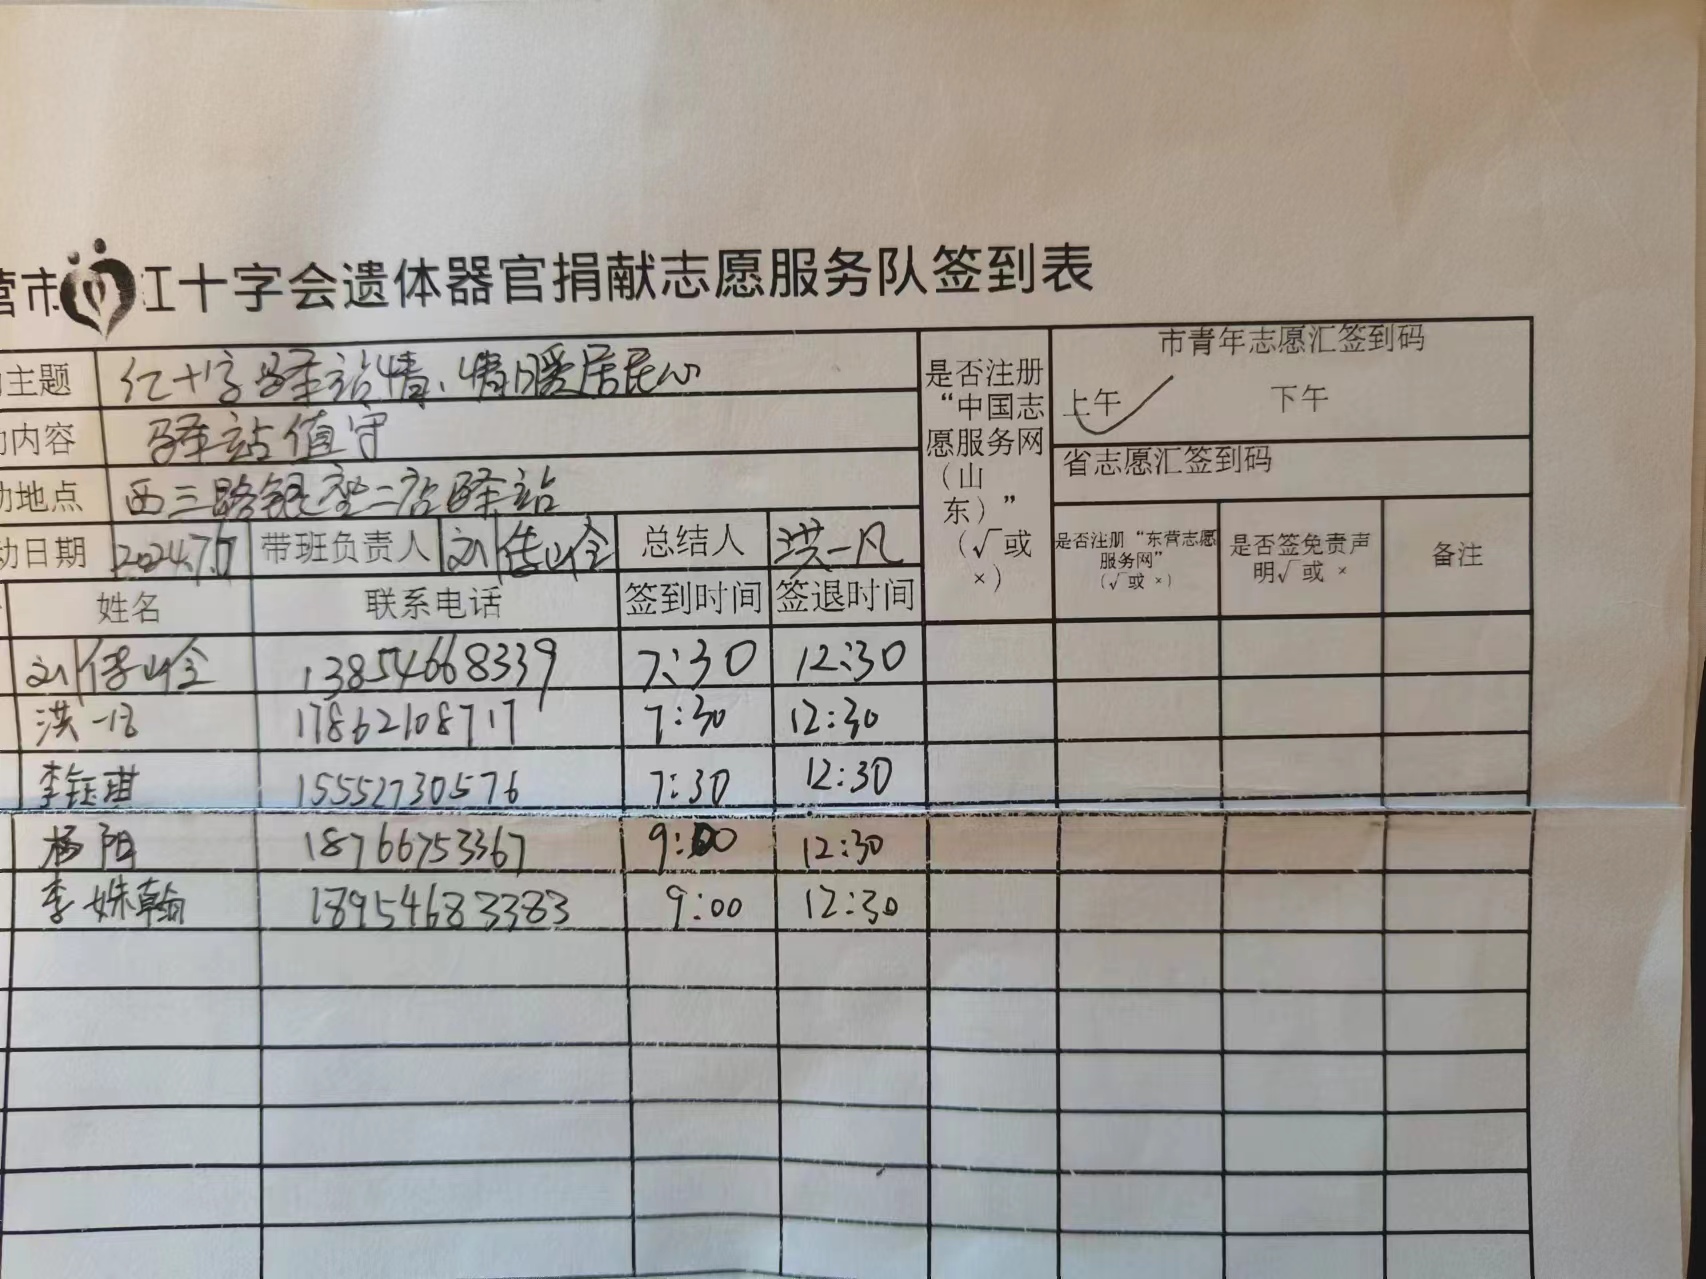 营市红十字会遗体器官捐献志愿服务队签到表
主题 红十字驿站情、情暖居民心
内容 驿站值守
动地点 西三路银座二店驿站
动日期 2024.7.7 带班负责人 刘 总结人 洪一凡
是否注册“中国志愿服务网(山东)”(√或×)
市青年志愿汇签到码
上午 ✓ 下午
省志愿汇签到码
是否注册“东营志愿服务网”(√或 ×) 是否签免责声明√或 × 备注
姓名 联系电话 签到时间 签退时间
刘 13854668339 7:30 12:30
洪一凡 17862108717 7:30 12:30
李钰琪 15552730576 7:30 12:30
杨阳 18766753367 9:00 12:30
李姝翰 18954683383 9:00 12:30